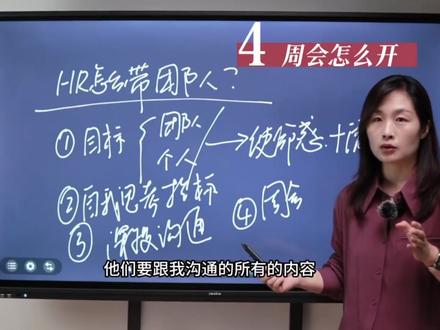 4 周会怎么开
HR怎么带团队人?
① 目标 团队 个人 → 使命感.
② 自我思考 指标
③ 深极沟通
④ 周会
他们要跟我沟通的所有的内容